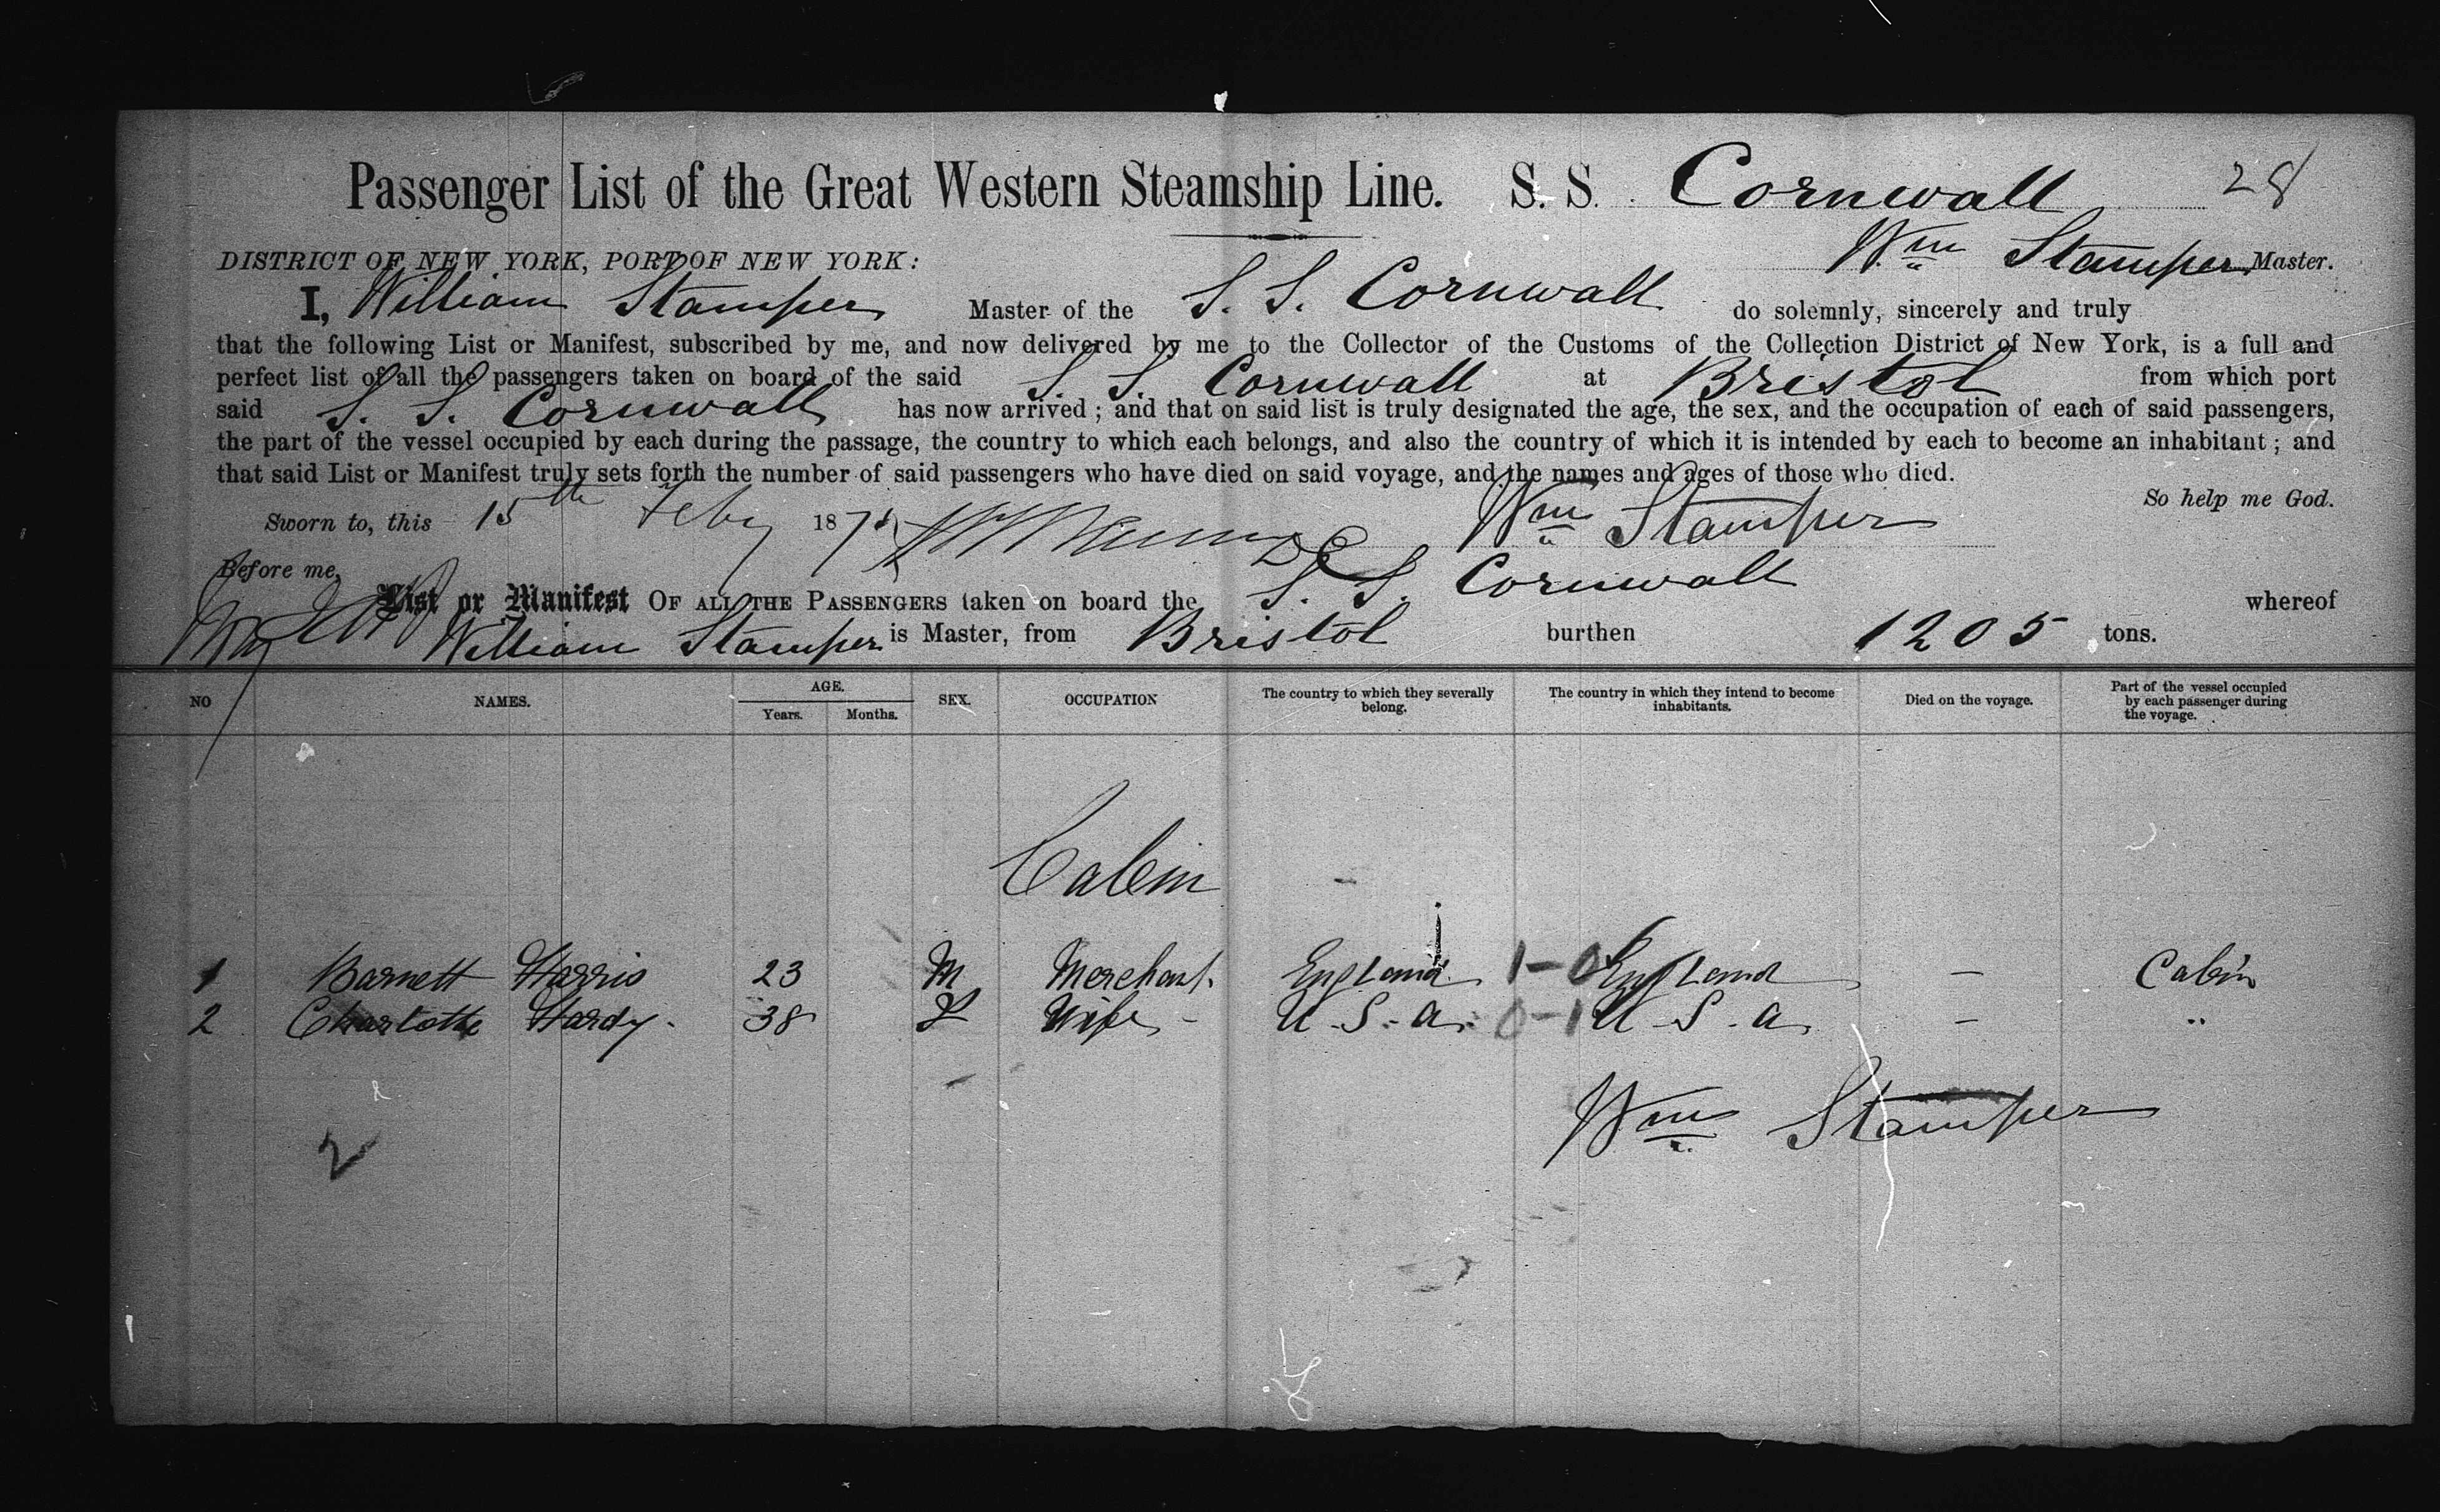 Passenger List of the Great Western Steamship Line. S. S. Cornwall 28
DISTRICT OF NEW YORK, PORT OF NEW YORK: Wm Stamper Master.
I, William Stamper Master of the S. S. Cornwall do solemnly, sincerely and truly
that the following List or Manifest, subscribed by me, and now delivered by me to the Collector of the Customs of the Collection District of New York, is a full and
perfect list of all the passengers taken on board of the said S. S. Cornwall at Bristol from which port
said S. S. Cornwall has now arrived; and that on said list is truly designated the age, the sex, and the occupation of each of said passengers,
the part of the vessel occupied by each during the passage, the country to which each belongs, and also the country of which it is intended by each to become an inhabitant; and
that said List or Manifest truly sets forth the number of said passengers who have died on said voyage, and the names and ages of those who died.
So help me God.
Sworn to, this 15th Feby 187 Wm Stamper
Before me,
List or Manifest OF ALL THE PASSENGERS taken on board the S. S. Cornwall whereof
William Stamper is Master, from Bristol burthen 1205 tons.
NO NAMES. AGE. Years. Months. SEX. OCCUPATION The country to which they severally belong. The country in which they intend to become inhabitants. Died on the voyage. Part of the vessel occupied by each passenger during the voyage.
Cabin
1 Barnett Harris 23 M Merchant. England 1-0 England — Cabin
2 Charlotte Hardy. 38 F Wife - U.S.A. 0-1 U.S.A. — "
Wm Stamper
2